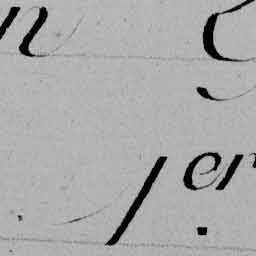 n
1er